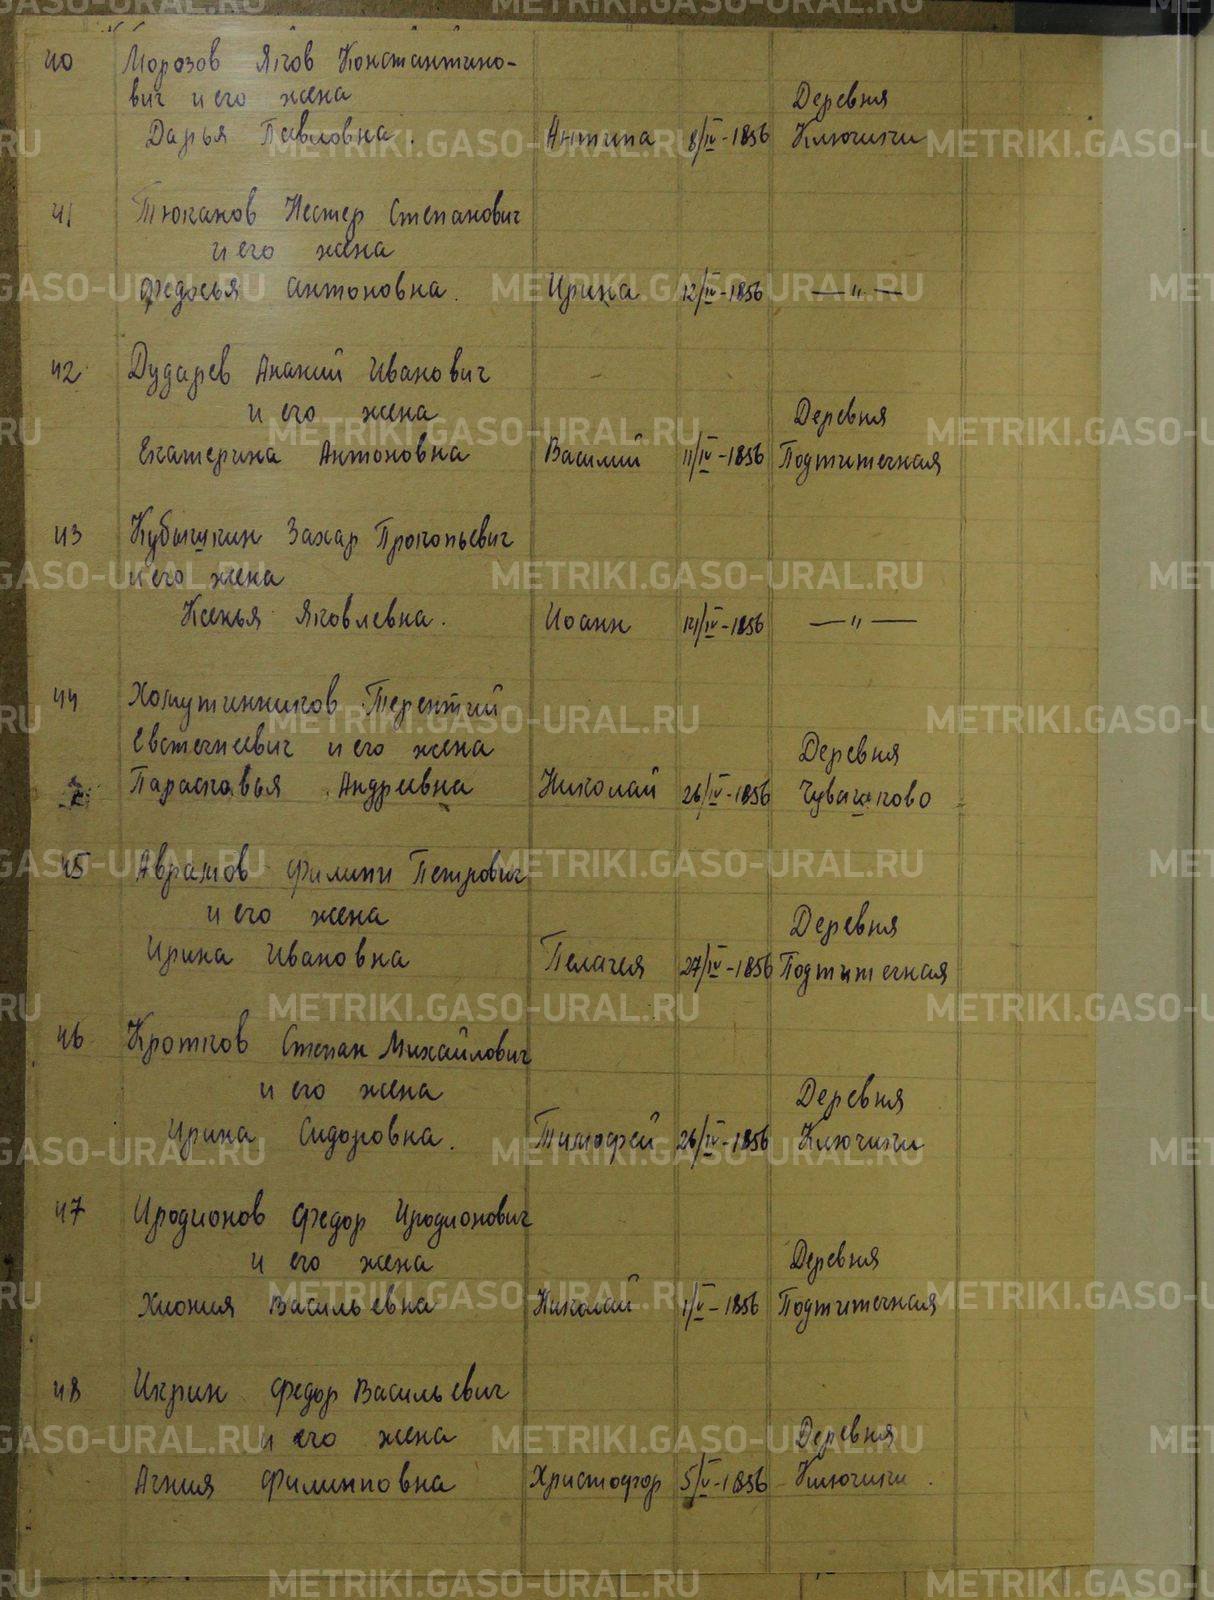 40 Морозов Яков Константино-
вич и его жена Деревня
Дарья Павловна. Антипа 8/IV-1856 Ключики
41 Тюканов Нестер Степанович
и его жена
Федосья Антоновна. Ирина 12/IV-1856 — " —
42 Дударев Ананий Иванович
и его жена Деревня
Екатерина Антоновна Василий 11/IV-1856 Подтитечная
43 Кубышкин Захар Прокопьевич
и его жена
Ксенья Яковлевна. Иоанн 14/IV-1856 — " —
44 Хомутинников Терентий
Евстегнеевич и его жена Деревня
Парасковья Андреевна Николай 26/IV-1856 Чувашково
45 Аврамов Филипп Петрович
и его жена Деревня
Ирина Ивановна Пелагея 27/IV-1856 Подтитечная
46 Кротков Степан Михайлович
и его жена Деревня
Ирина Сидоровна. Тимофей 26/IV-1856 Ключики
47 Иродионов Федор Иродионович
и его жена Деревня
Хиония Васильевна Николай 1/V-1856 Подтитечная
48 Икрин Федор Васильевич
и его жена Деревня
Агния Филипповна Христофор 5/V-1856 Ключики.
METRIKI.GASO-URAL.RU